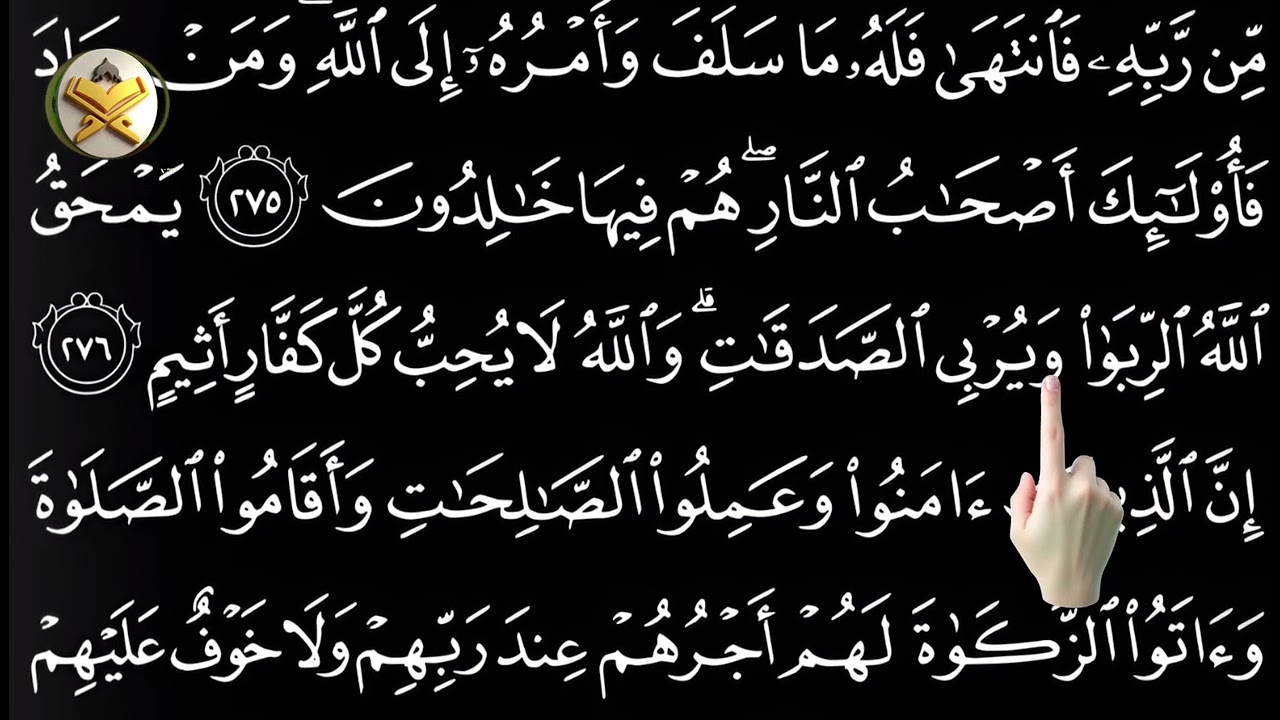 مِّن رَّبِّهِۦ فَٱنتَهَىٰ فَلَهُۥ مَا سَلَفَ وَأَمْرُهُۥٓ إِلَى ٱللَّهِ وَمَنْ
فَأُو۟لَـٰٓئِكَ أَصْحَـٰبُ ٱلنَّارِ ۖ هُمْ فِيهَا خَـٰلِدُونَ ٢٧٥ يَمْحَقُ
ٱللَّهُ ٱلرِّبَوٰا۟ وَيُرْبِى ٱلصَّدَقَـٰتِ ۗ وَٱللَّهُ لَا يُحِبُّ كُلَّ كَفَّارٍ أَثِيمٍ ٢٧٦
إِنَّ ءَامَنُوا۟ وَعَمِلُوا۟ ٱلصَّـٰلِحَـٰتِ وَأَقَامُوا۟ ٱلصَّلَوٰةَ
وَءَاتَوُا۟ ٱلزَّكَوٰةَ لَهُمْ أَجْرُهُمْ عِندَ رَبِّهِمْ وَلَا خَوْفٌ عَلَيْهِمْ